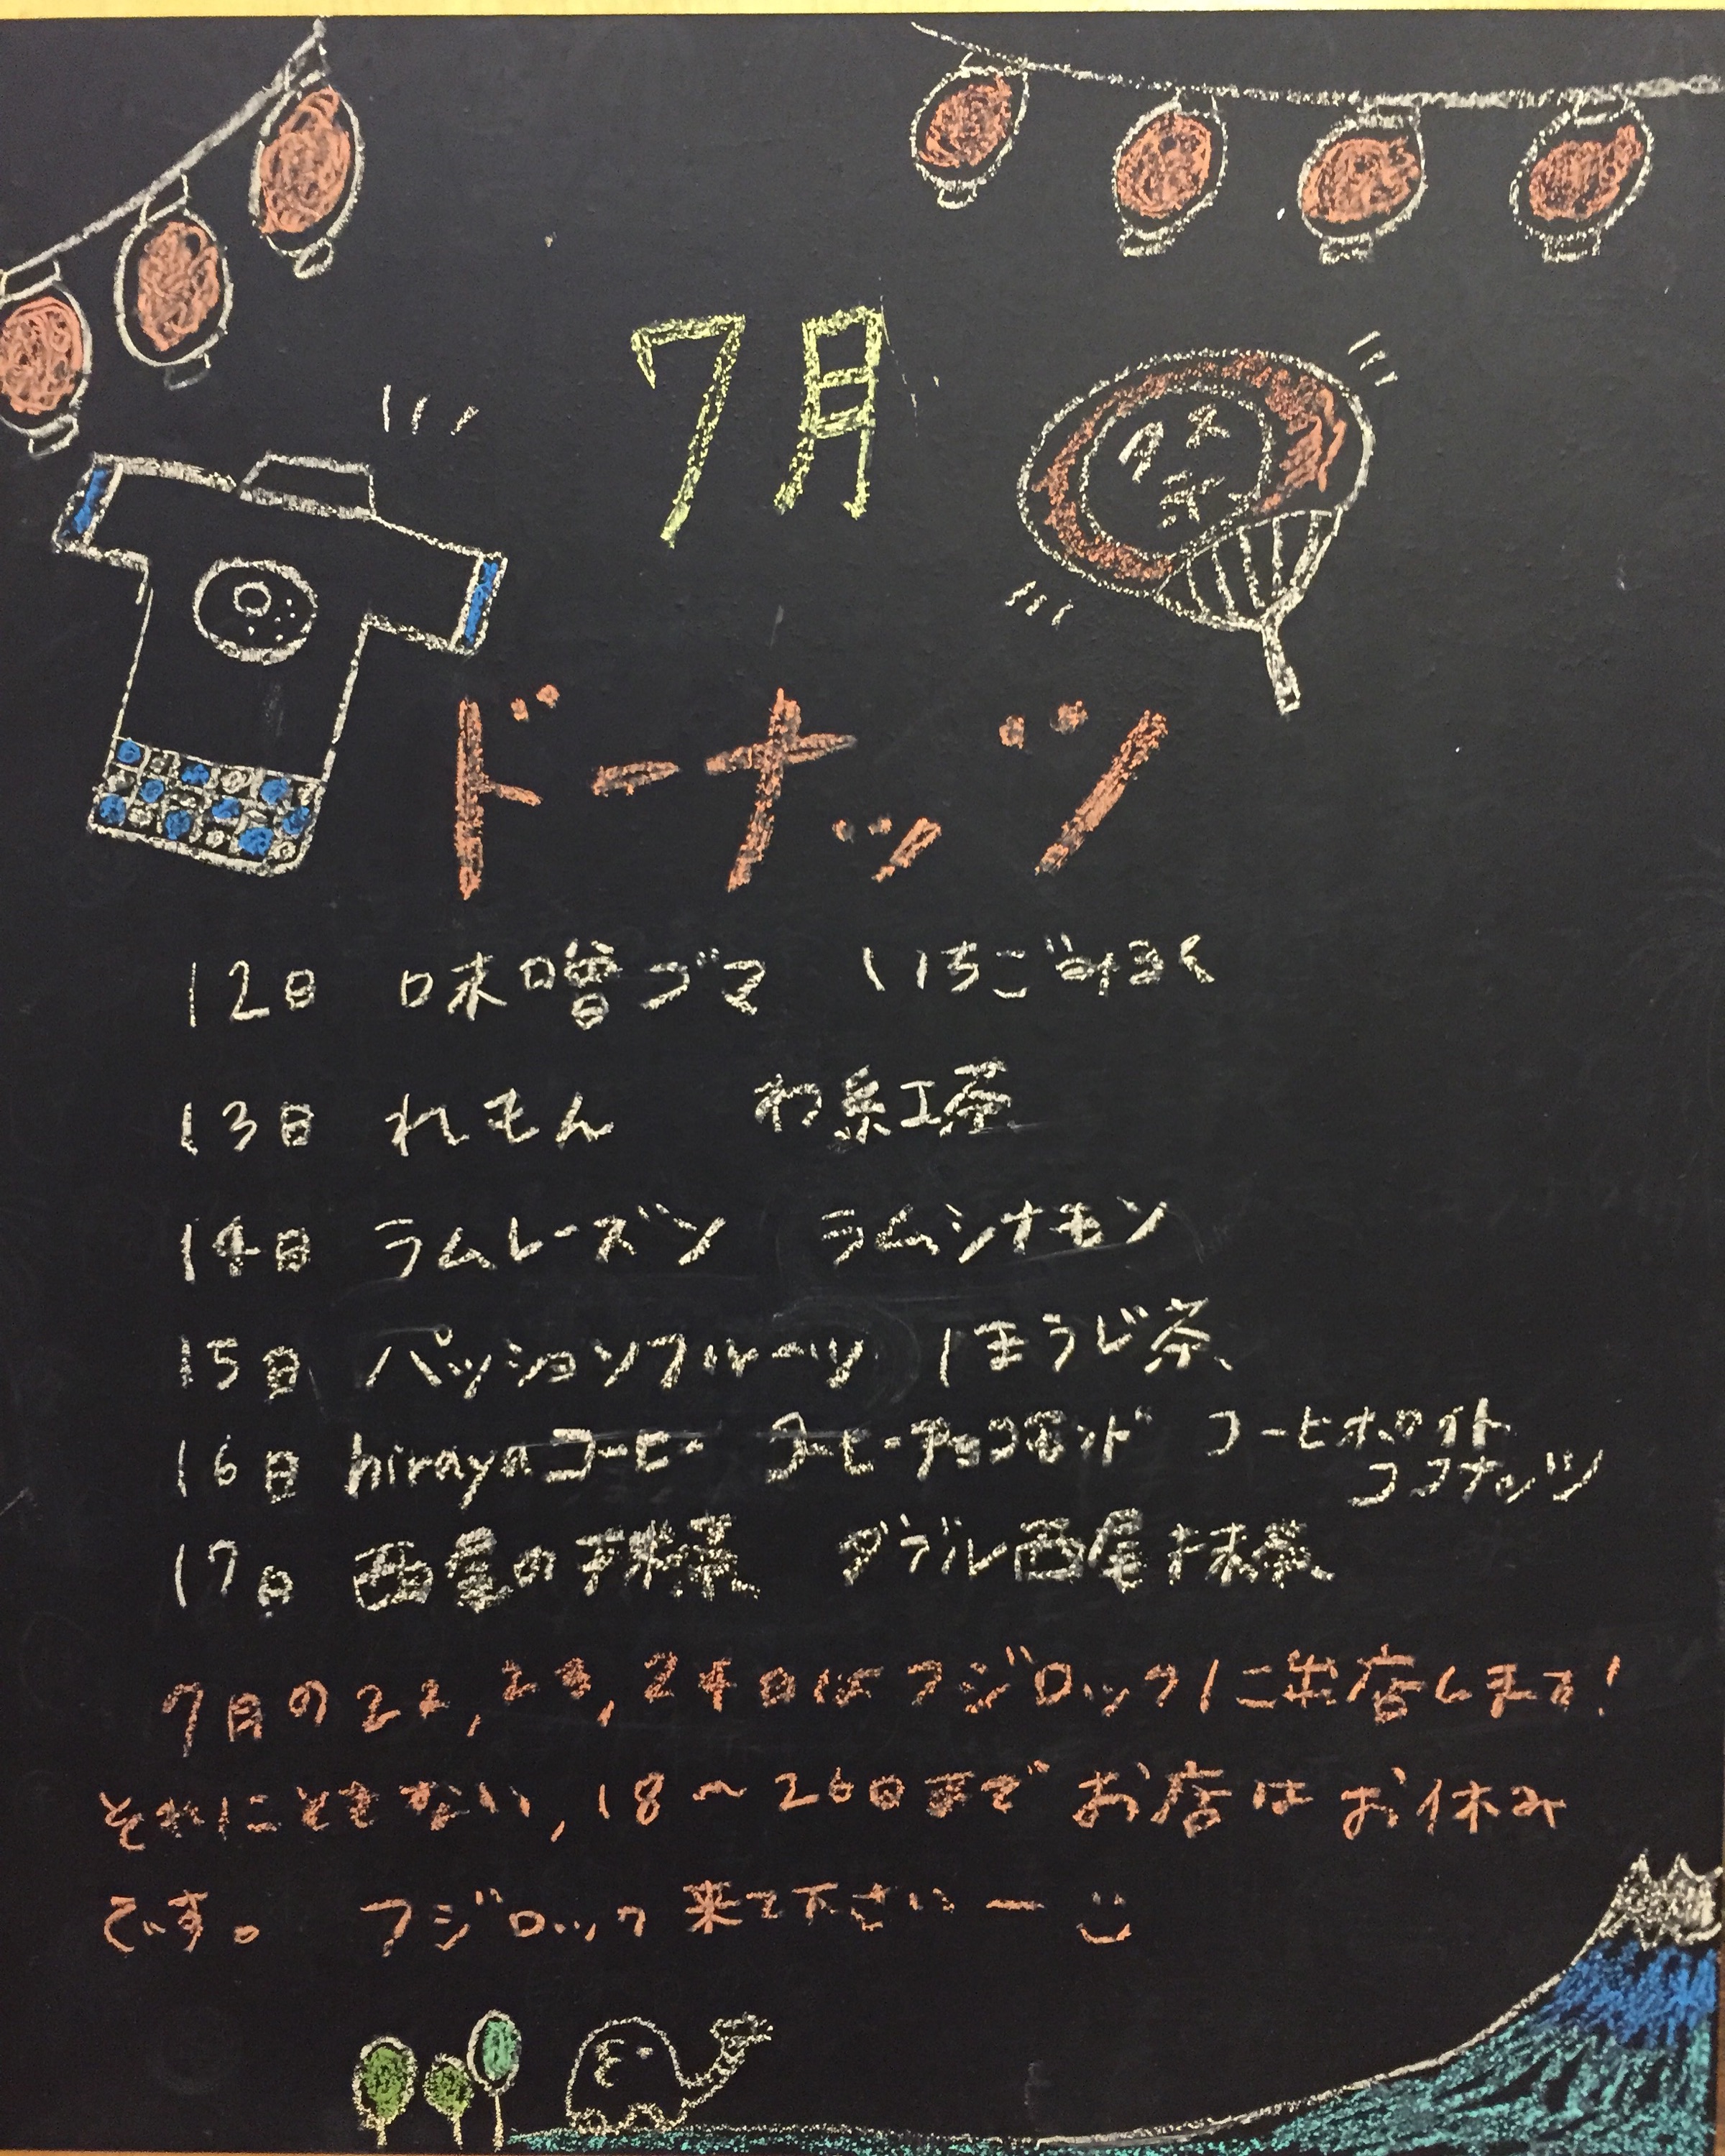 7月
祭
ドーナッツ
12日 味噌ゴマ いちごみるく
13日 れもん 和紅茶
14日 ラムレーズン ラムシナモン
15日 パッションフルーツ ほうじ茶
16日 hirayaコーヒー コーヒーチョコアーモンド コーヒーホワイト
ココナッツ
17日 西尾の抹茶 ダブル西尾抹茶
7月の22,23,24日はフジロックに出店します!
それにともない,18〜26日までお店はお休み
です。 フジロック来て下さいー